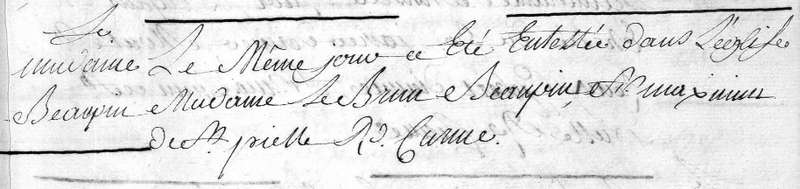 Le
madame
Beaupin
Le Même jour a Eté Enterrée dans L'église
Madame Le Brun Beaupin, fr. maximin
de St. pierre Rd. Carme.